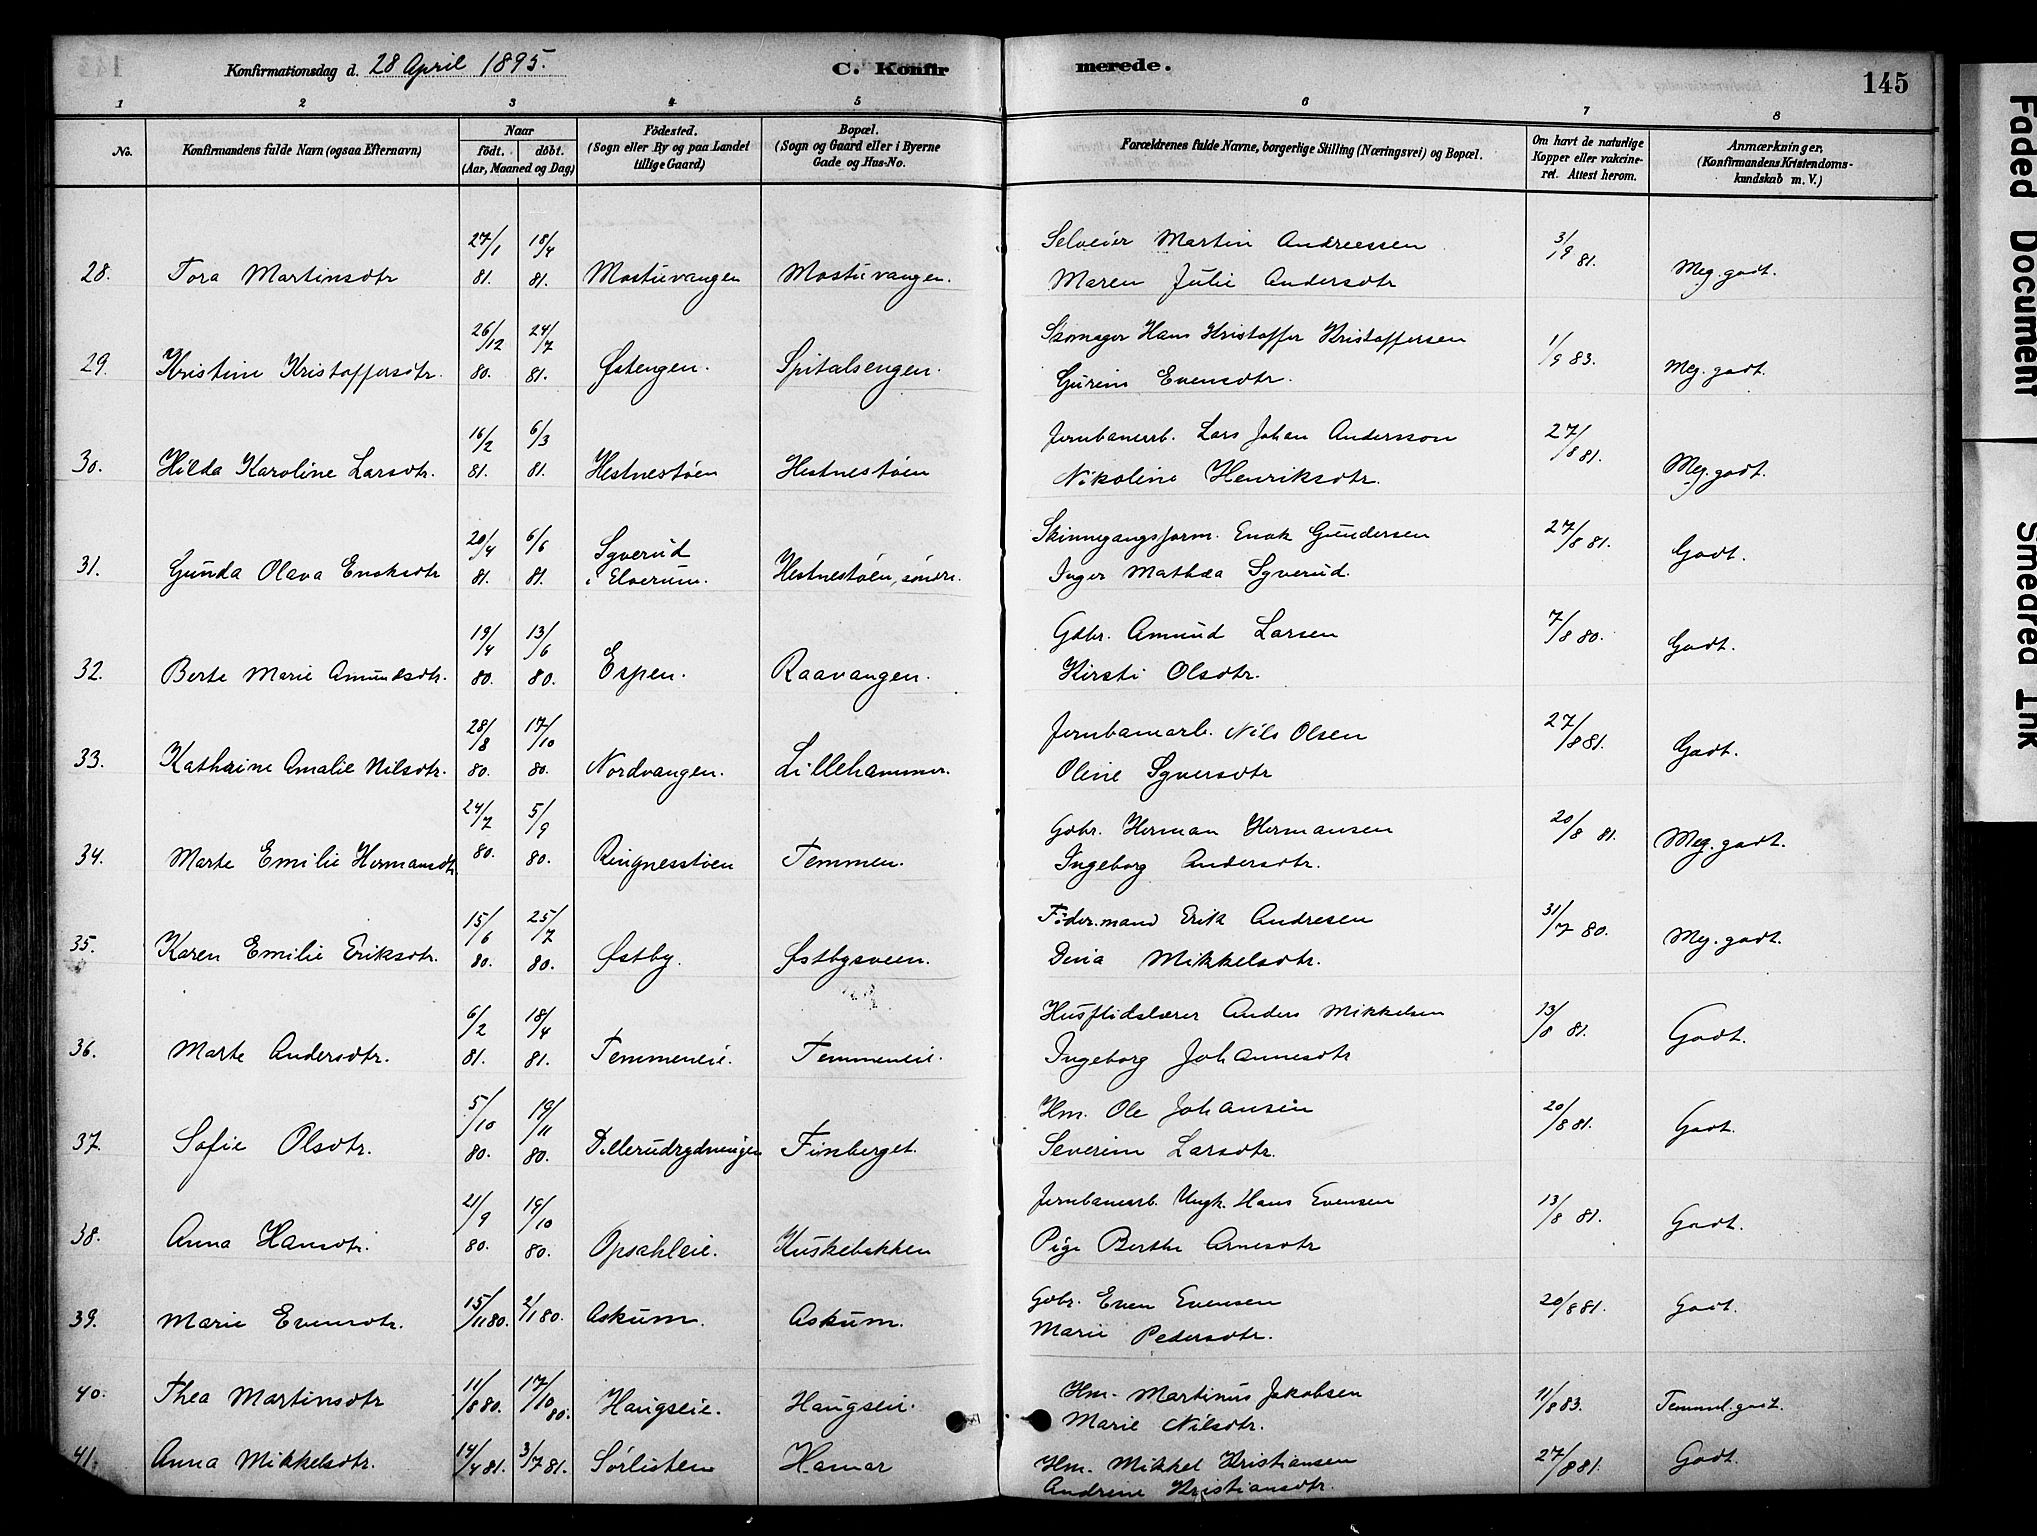 Konfirmationsdag d. 28 April 1895. C. Konfirmerede. 145
1 2 3 4 5 6 7 8
No. Konfirmandens fulde Navn (ogsaa Efternavn) Naar født. døbt. (Aar, Maaned og Dag) Fødested. (Sogn eller By og paa Landet tillige Gaard) Bopæl. (Sogn og Gaard eller i Byerne Gade og Hus-No. Forældrenes fulde Navne, borgerlige Stilling (Næringsvei) og Bopæl. Om havt de naturlige Kopper eller vakcineret. Attest herom. Anmærkninger. (Konfirmandens Kristendomskundskab m. V.)
28. Tora Martinsdtr 27/1 81. 18/4 81. Mostuvangen Mostuvangen. Selveier Martin Andreessen Maren Julie Andersdtr 3/9 81. Meg. godt.
29. Kristine Kristoffersdtr. 26/12 80. 24/7 81. Østengen. Spitalsengen. Skomager Hans Kristoffer Kristoffersen Gurine Evensdtr. 1/9 83. Meg. godt.
30. Hilda Karoline Larsdtr. 16/2 81. 6/3 81. Hestnestøen Hestnestøen Jernbanearb. Lars Johan Andersson Nikoline Henriksdtr. 27/8 81. Meg. godt.
31. Gunda Olava Enoksdtr 20/4 81. 6/6 81. Syverud i Elverum. Hestnestøen, søndre. Skinnegangsform. Enok Gundersen Inger Mathea Syverud. 27/8 81. Godt.
32. Berte Marie Amundsdtr. 19/4 80. 13/6 80. Espen. Raavangen. Gdbr. Amund Larsen Kirsti Olsdtr. 7/8 80. Godt.
33. Kathrine Amalie Nilsdtr. 28/8 80. 17/10 80. Nordvangen. Lillehammer. Jernbanearb. Nils Olsen Oline Syversdtr 27/8 81. Godt.
34. Marte Emilie Hermansdtr. 24/7 80. 5/9 80. Ringnesstøen Temmen. Gdbr. Herman Hermansen Ingeborg Andersdtr. 20/8 81. Meg. godt.
35. Karen Emilie Eriksdtr. 15/6 80. 25/7 80. Østby. Østbysveen. Føder.mand Erik Andresen Dina Mikkelsdtr. 31/7 80. Meg. godt.
36. Marte Andersdtr. 6/2 81. 18/4 81. Temmeneie. Temmeneie. Husflidslærer Anders Mikkelsen Ingeborg Johannesdtr 13/8 81. Godt.
37. Sofie Olsdtr. 5/10 80. 19/11 80. Dellerudrydningen Finberget. Hm. Ole Johansen Severine Larsdtr. 20/8 81. Godt.
38. Anna Hansdtr. 21/9 80. 19/10 80. Opsahleie. Kuskebakken Jernbanearb. Ungk. Hans Evensen Pige Berthe Arnesdtr 13/8 81. Godt.
39. Marie Evensdtr. 15/11 80. 2/1 80. Askum. Askum. Gdbr. Even Evensen Marie Pedersdtr. 20/8 81. Godt.
40. Thea Martinsdtr 11/8 80. 17/10 80. Haugseie. Haugseie. Hm. Martinus Jakobsen Marie Nilsdtr. 11/8 83. Temmel. godt.
41. Anna Mikkelsdtr. 14/4 81. 3/7 81. Sørlisten Hamar Hm. Mikkel Kristiansen Andrene Kristiansdtr. 27/8 81. Godt.
Faded Document
Smeared Ink